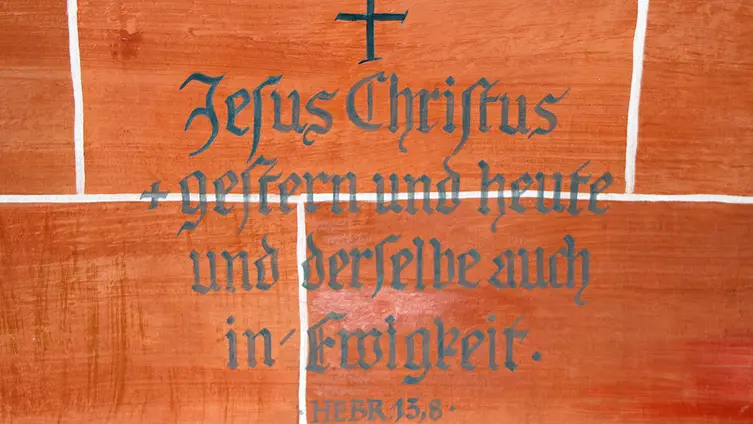 Jesus Christus
+ gestern und heute
und derselbe auch
in Ewigkeit.
· HEBR 13,8 ·